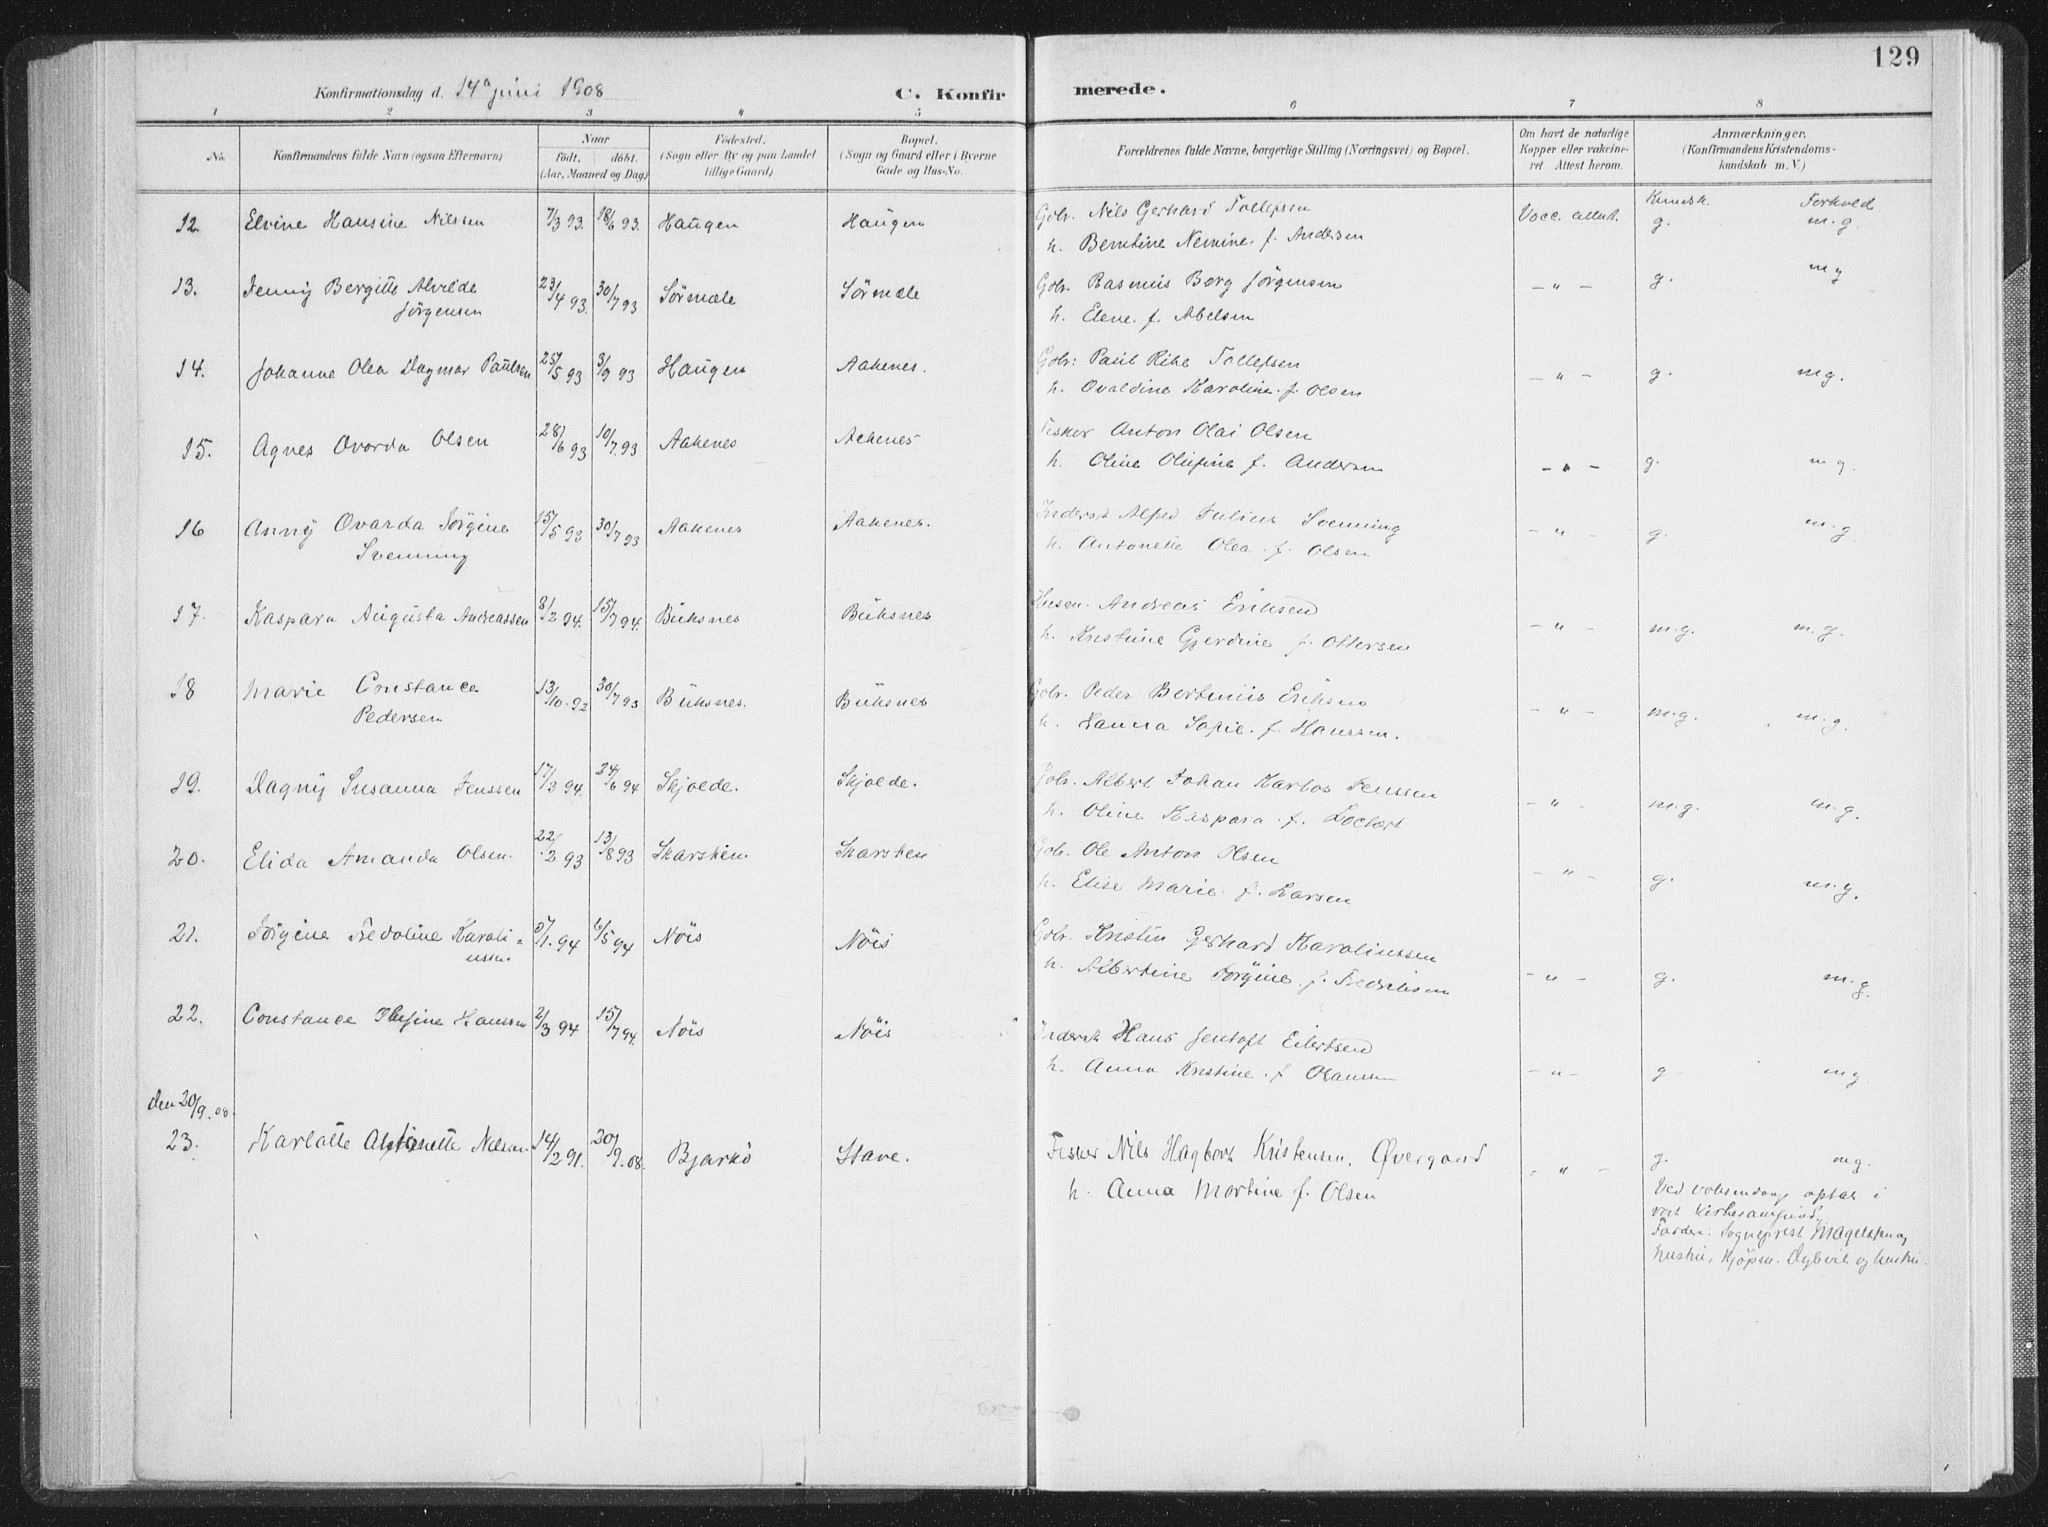 129
Konfirmationsdag d. 14de juni 1908 C. Konfirmerede.
1 2 3 4 5 6 7 8
No.
Konfirmandens fulde Navn (ogsaa Efternavn)
Naar
født. døbt.
(Aar, Maaned og Dag)
Fødested.
(Sogn eller By og paa Landet
tillige Gaard)
Bopæl.
(Sogn og Gaard eller i Byerne
Gade og Hus-No.
Forældrenes fulde Navne, borgerlige Stilling (Næringsvei) og Bopæl.
Om havt de naturlige
Kopper eller vakcine-
ret Attest herom.
Anmærkninger.
(Konfirmandens Kristendoms-
kundskab m. V.)
Kundsk. Forhold
12. Elvine Hansine Nilssen 7/3 93. 18/6 93. Haugen Haugen Gbr. Nils Gerhard Tollefsen Vacc. attest. g. m.g.
h. Berntine Nemine. f. Andersen
13. Jenny Bergitte Alvilde 23/4 93. 30/7 93 Sørmæle Sørmæle Gbr. Rasmus Borg Jørgensen - " - g. mg
Jørgensen h. Elene. f. Abelsen
14. Johanne Olea Dagmar Paulsen 25/5 93 3/9 93 Haugen Aakenes. Gbr: Paul Rike Tollefsen - " - g. mg.
h. Ovaldine Karoline. f. Olsen
15. Agnes Ovarda Olsen 28/6 93 10/7 93 Aakenes Aakenes Fisker Anton Olai Olsen - " - g. mg.
h. Oline Olufine f. Andersen
16 Anny Ovarda Sørgine 15/5 93 30/7 93 Aakenes Aakenes. Inderst Alfred Julius Svenning - " - g. m.g.
Svenning h. Antonette Olea. f. Olsen
17. Kaspara Augusta Andreassen 8/2 94. 15/7 94. Buksnes Buksnes Husm. Andreas Eriksen - " - m.g. m.g.
h. Kristine Gjerdine f. Ottersen
18 Marie Constance 13/10. 92 30/7 93 Buksnes. Buksnes Gbr. Peder Bertinius Eriksen - " - m.g. m.g.
Pedersen h. Hanna Sofie. f. Hanssen.
19. Dagny Susanna Jenssen 17/3 94. 24/6 94 Skjolde. Skjolde. Gbr. Albert Johan Karlos Jenssen - " - m.g. m.g.
h. Oline Kaspara. f. Lockert
20. Elida Amanda Olsen. 22/2 93 13/8 93 Skarsten Skarsten Gbr. Ole Anton Olsen - " - g. m.g.
h. Elise Marie. f. Larsen
21. Jørgine Fredoline Karoli- 5/1. 94 6/5 94 Nöis Nöis Gbr. Kristin Gerhard Karoliussen - " - g. m.g.
ussen h. Albertine Jørgine. f. Fredriksen
22. Constance Olufine Hanssen 2/3 94 15/7 94. Nöis Nöis Inderst Hans Jentoft Eilertsen - " - g mg
h. Anna Kristine. f. Johansen
den 20/9. 08.
23. Karlotte Antonette Nilssen 14/2 91. 20/9. 08. Bjarkö Stave. Fisker Nils Hagbart Kristensen, Øvergaard - " - g. mg.
h. Anna Martine f. Olsen
Ved voksendaab optat i
vort kirkesamfund.
Faddere: Sogneprest Magelssen og
hustru, Kjøpm. Dybvik og hustru.